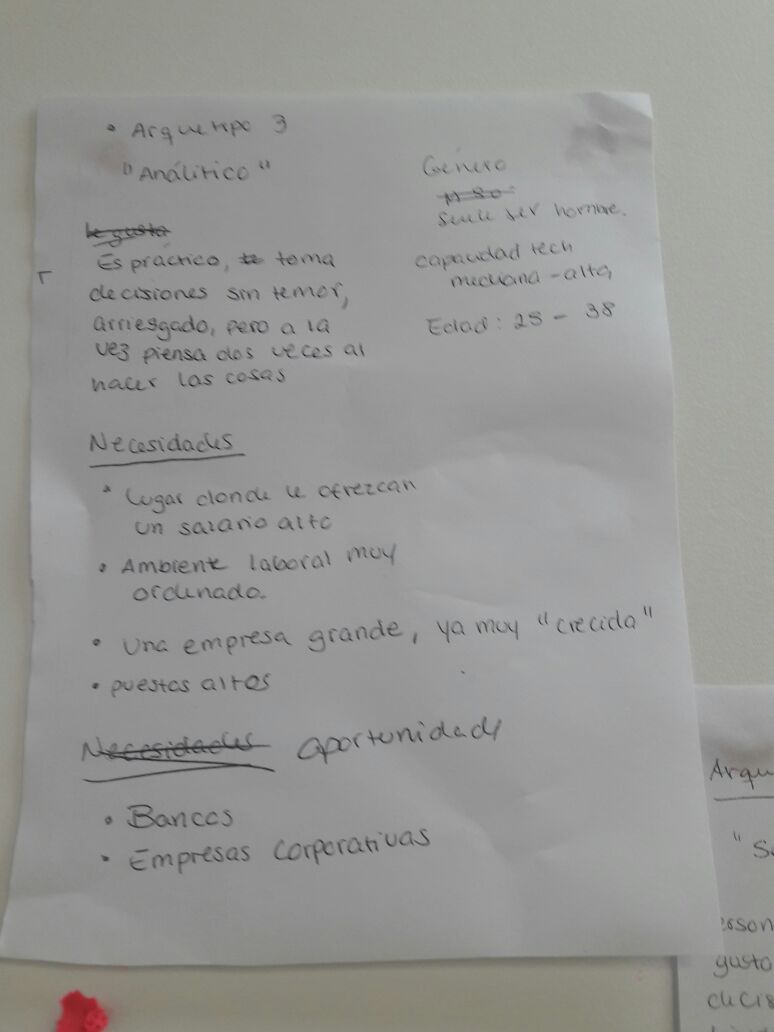 • Arquetipo 3
"Análitico"
le gusta
Es práctico, te toma
decisiones sin temor,
arriesgado, pero a la
vez piensa dos veces al
hacer las cosas
Género
Suele ser hombre.
capacidad tech
mediana - alta,
Edad: 25 - 38
Necesidades
• Lugar donde le ofrezcan
un salario alto
• Ambiente laboral muy
ordenado.
• Una empresa grande, ya muy "crecida"
• puestos altos
Necesidades oportunidad
• Bancos
• Empresas corporativas
Arqu
"S
erson
gusto
decis